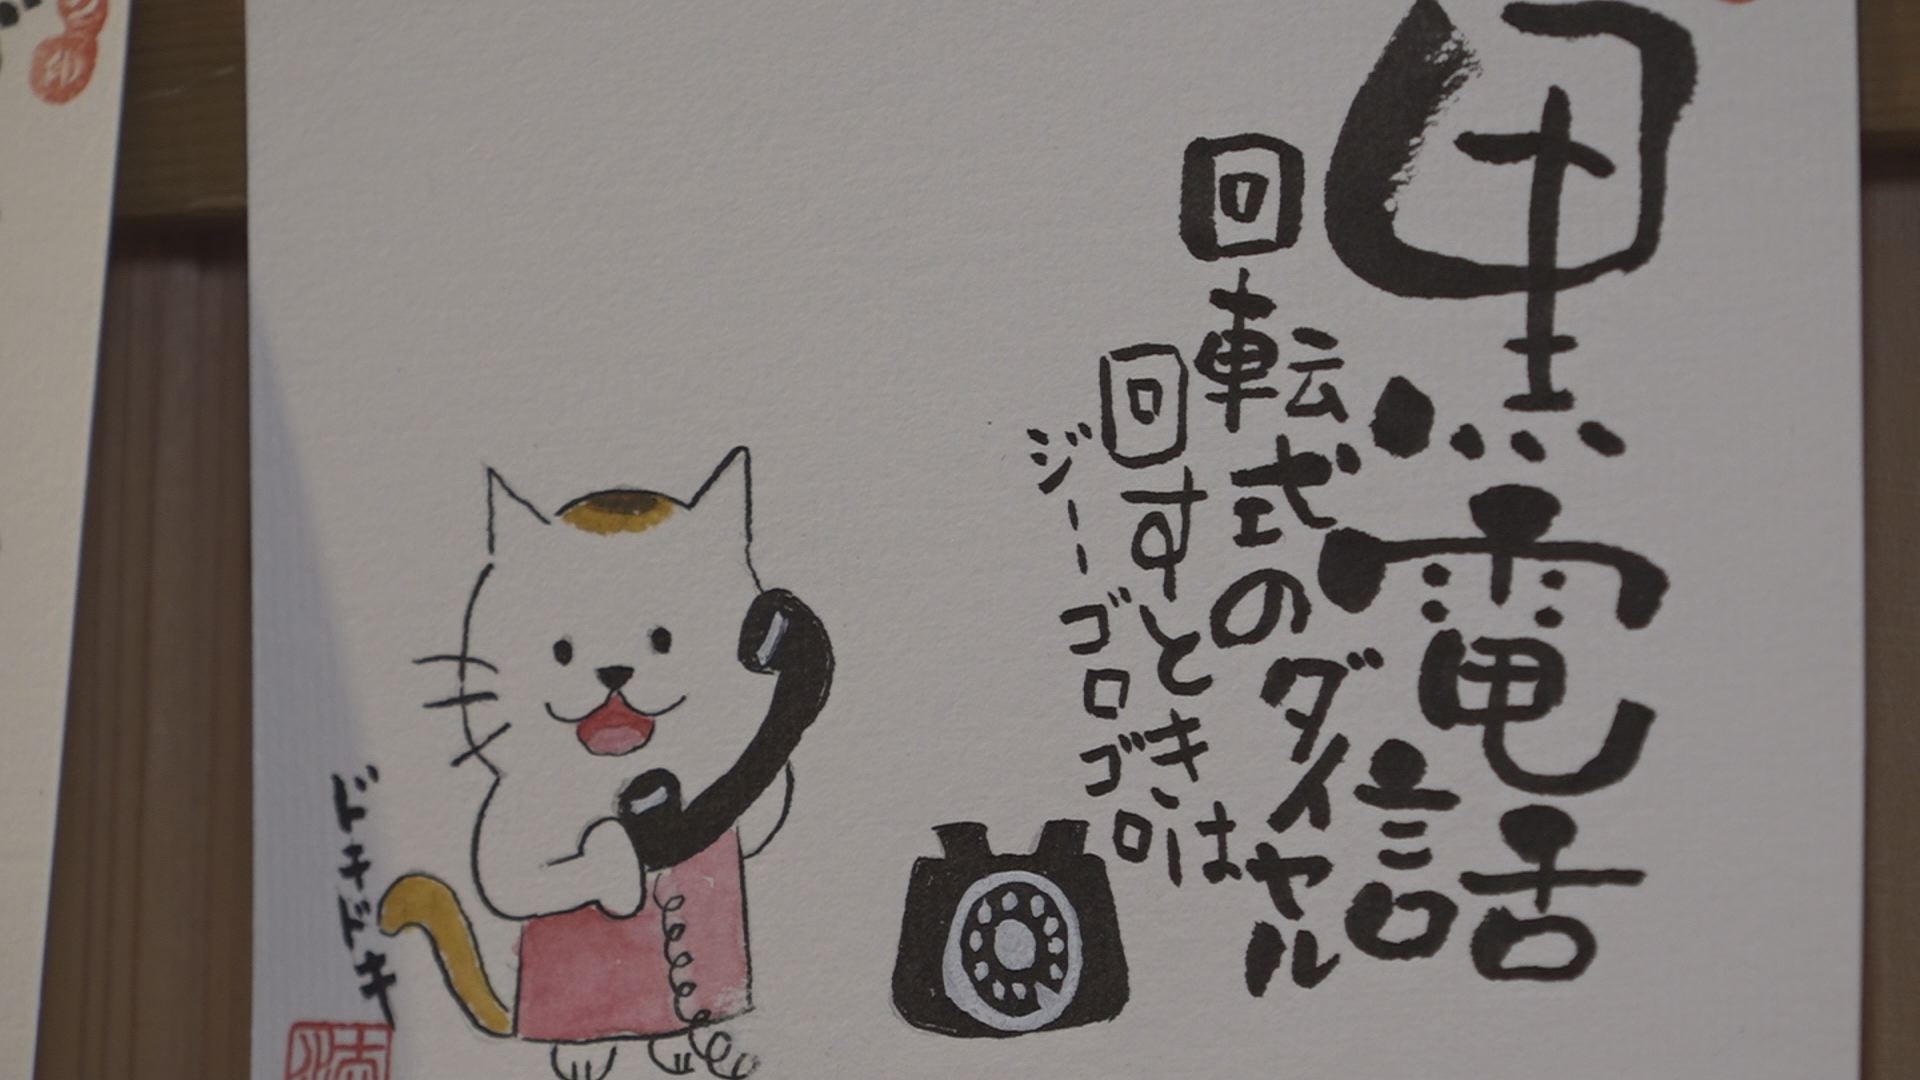 黒電話
回転式のダイヤル
回すときは
ジーゴロゴロ
ドキドキ